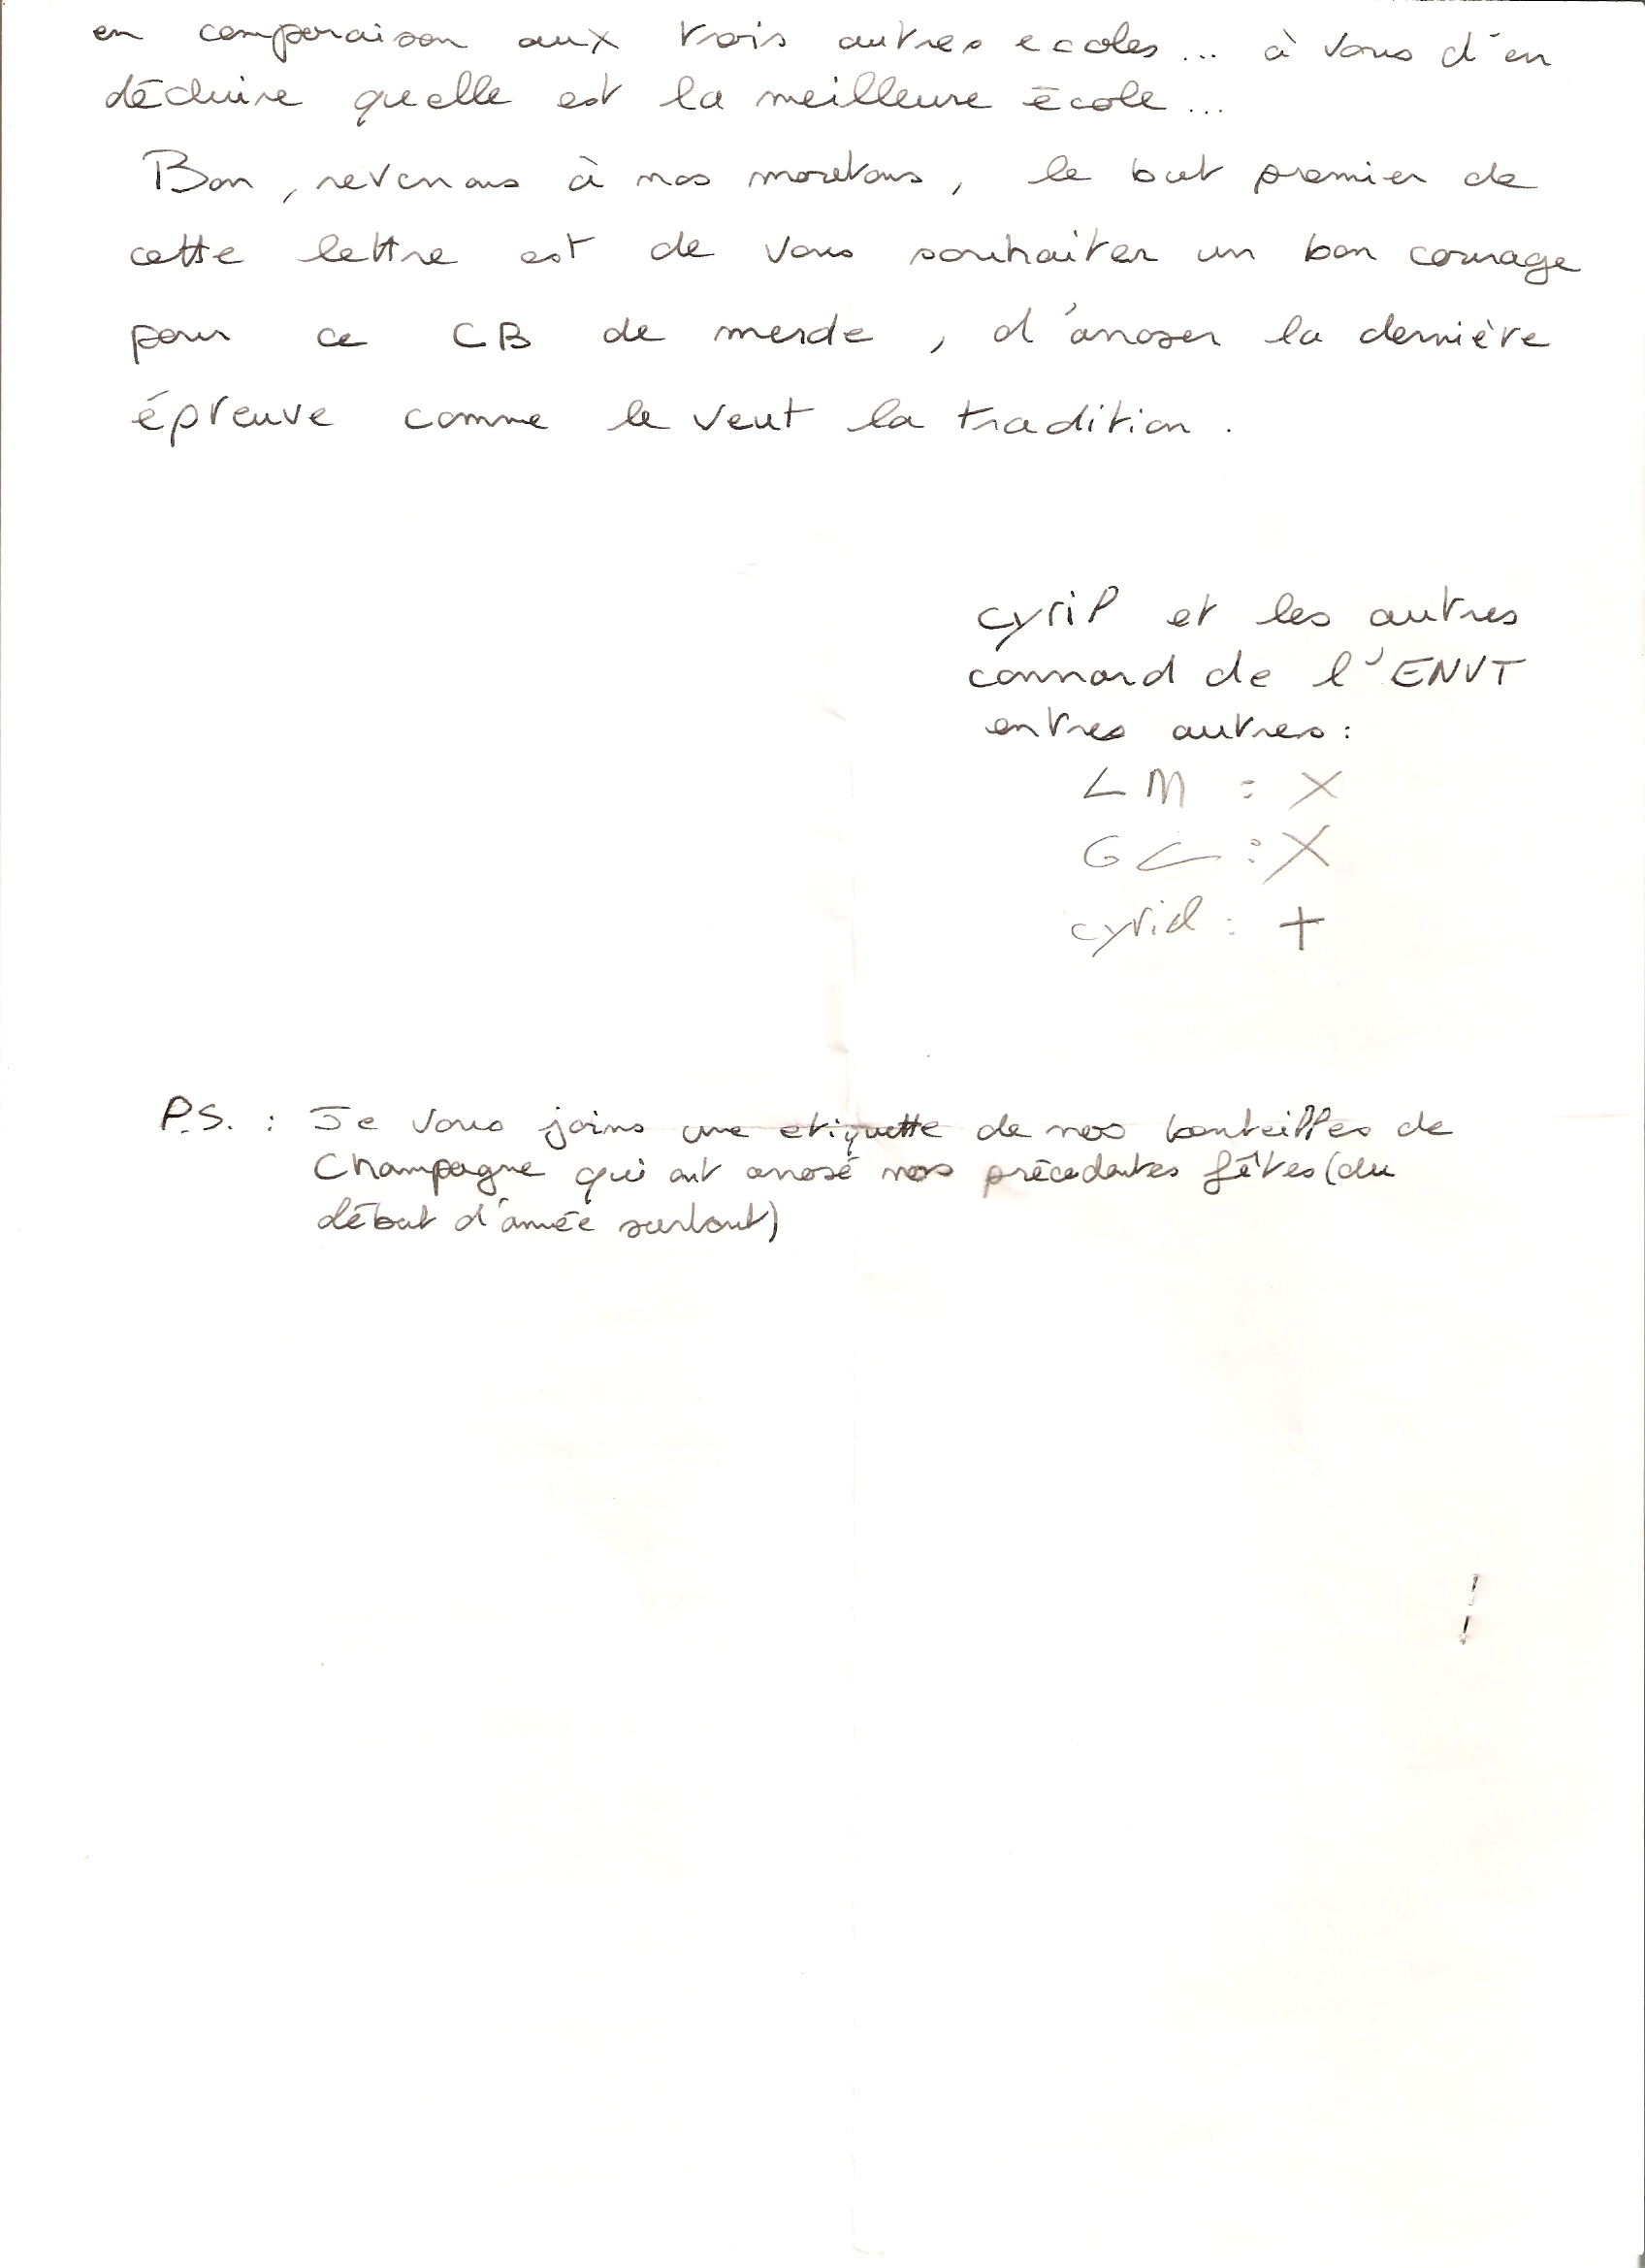 en comparaison aux trois autres ecoles... à vous d'en
déduire quelle est la meilleure école...
Bon, revenons à nos moutons, le but premier de
cette lettre est de vous souhaiter un bon courage
pour ce CB de merde, d'arroser la dernière
épreuve comme le veut la tradition.
cyril et les autres
connard de l'ENVT
entres autres :
LM : X
GC : X
cyril : +
P.S. : Je vous joins une etiquette de nos bouteilles de
Champagne qui ont arrosé nos précedentes fêtes (du
début d'année surtout)